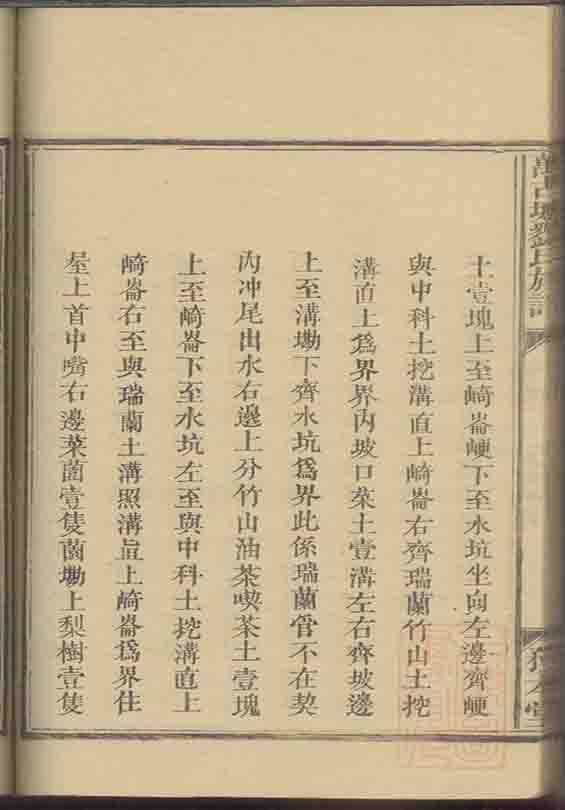 土壹塊上至崎崙㟰下至水坑坐向左邊齊㟰
與中科土挖溝直上崎崙右齊瑞蘭竹山土挖
溝直上為界界內坡口菜土壹溝左右齊坡邊
上至溝墈下齊水坑為界此係瑞蘭管不在契
內冲尾出水右邊上分竹山油茶喫茶土壹塊
上至崎崙下至水坑左至與中科土挖溝直上
崎崙右至與瑞蘭土溝照溝直上崎崙為界住
屋上首中嘴右邊菜薗壹隻薗墈上梨樹壹隻